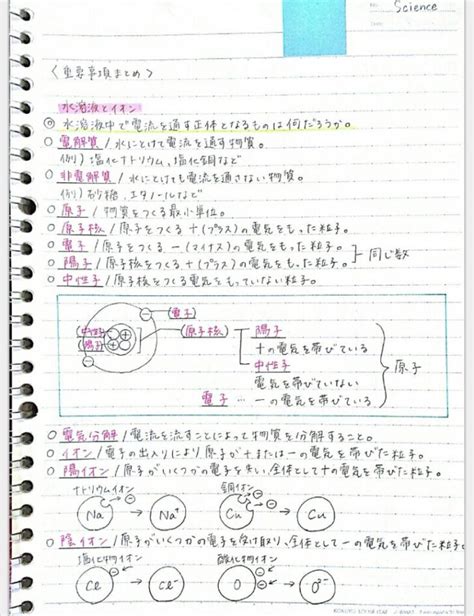 Science
〈重要事項まとめ〉
水溶液とイオン
◎ 水溶液中で電流を通す正体となるものは何だろうか。
○ 電解質/水にとけて電流を通す物質。
例)塩化ナトリウム、塩化銅など
○ 非電解質/水にとけても電流を通さない物質。
例)砂糖、エタノールなど
○ 原子/物質をつくる最小単位。
○ 原子核/原子をつくる+(プラス)の電気をもった粒子。
○ 電子/原子をつくる-(マイナス)の電気をもった粒子。
○ 陽子/原子をつくる+(プラス)の電気をもった粒子。
同じ数
○ 中性子/原子をつくる電気をもっていない粒子。
(電子)
(中性子)
(陽子)
(原子核)
陽子
+の電気を帯びている
中性子
電気を帯びていない
電子…-の電気を帯びている
原子
○ 電気分解/電流を流すことによって物質を分解すること。
○ イオン/電子の出入りにより原子が+または-の電気を帯びた粒子。
○ 陽イオン/原子がいくつかの電子を失い、全体として+の電気を帯びた粒子。
ナトリウムイオン 銅イオン
Na → Na⁺ Cu → Cu
○ 陰イオン/原子がいくつかの電子を受け取り、全体として-の電気を帯びた粒子。
塩化物イオン 酸化物イオン
Cl → Cl⁻ O → O²⁻